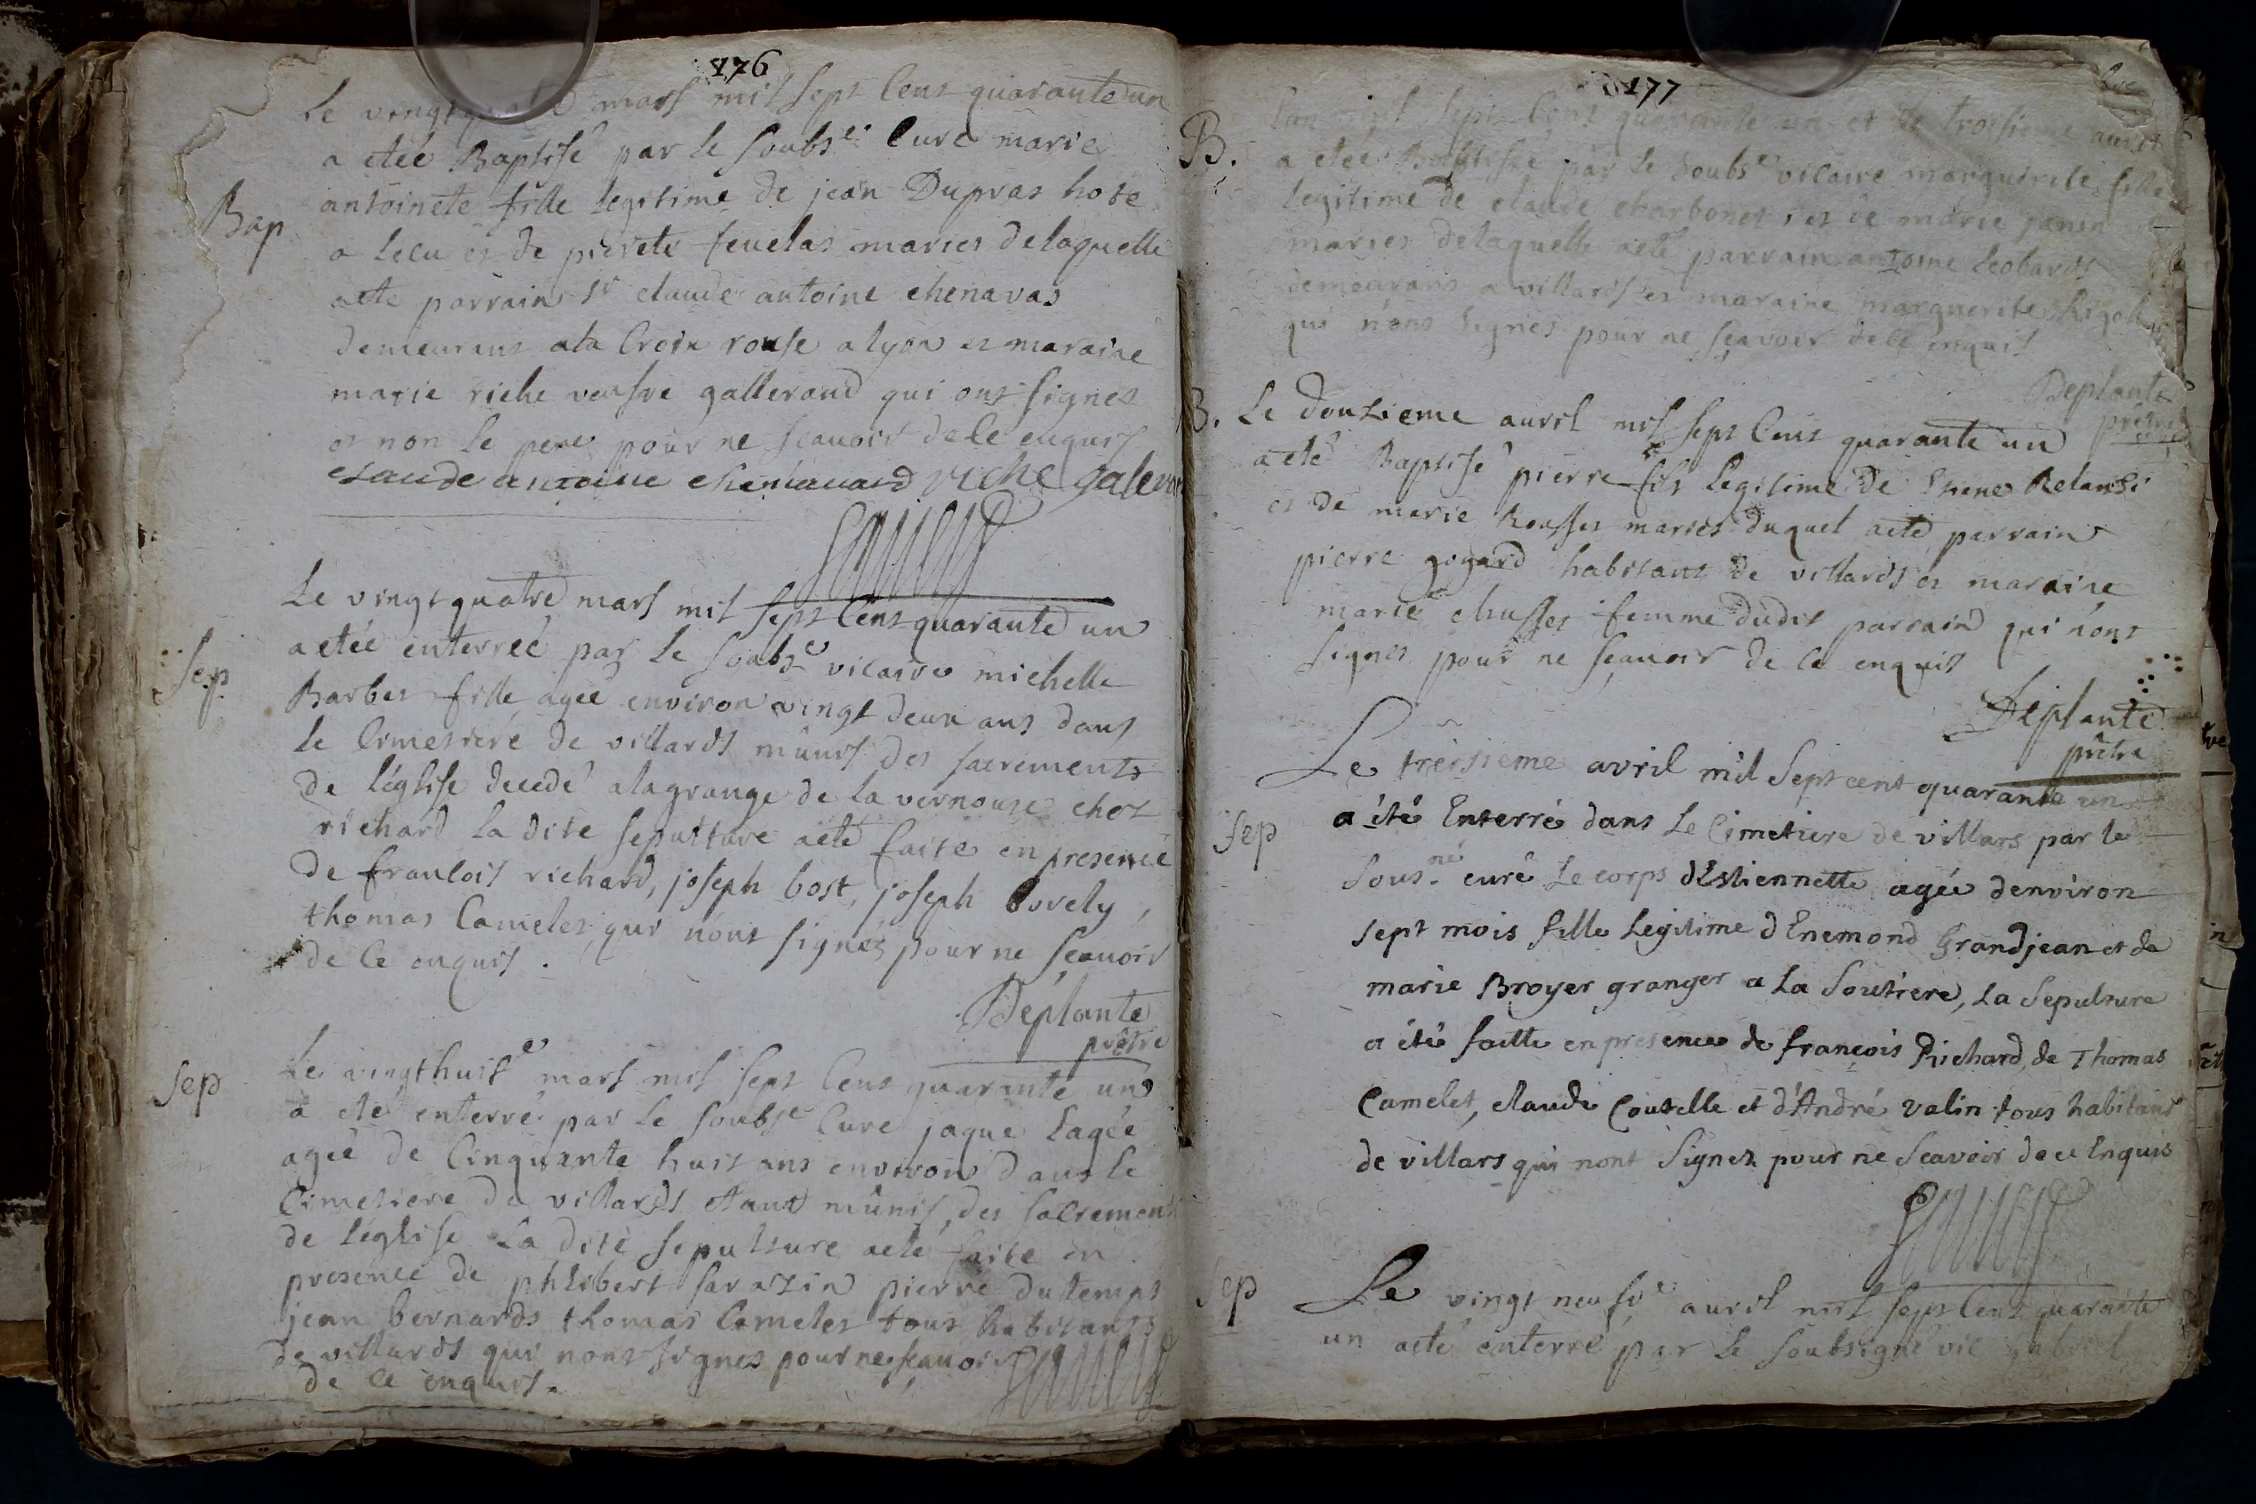 176
Le vingt quatre mars mil sept Cens quarante un
a etée Baptisé par le soubs.é Curé marie
Bap
antoinete fille legitime de jean Dupras hote
a lecu et de pierete fevelas maries delaquelle
aeté parrain sr claude antoine chenavas
demeurant ala Croix rousse a lyon et maraine
marie riche veufve gallerand qui ont signes
et non le pere pour ne scavoir de ce enquis
claude antoine chenavard riche galeran
Le vingt quatre mars mil sept Cens quarante un
aetée enterreé par le soubs.é vicaire michelle
Sep.
Barbet fille ageé environ vingt deux ans dans
le Cimetiere de villards munis des sacrements
de l'eglise decedé alagrange de la vernouze chez
richard la dite sepulture aeté faite en presence
de francois richard, joseph bost, joseph Lovely,
thomas Camelet qui n'ont signés pour ne sçavoir
de Ce enquis.
Déplante
prêtre
Sep
Le vingthuit e mars mil sept Cens quarante un
a eté enterré par le soubs.é Curé jaque Lageé
ageé de Cinquante huit ans environ dans le
Cimetiere de villards etant munis, des sacrement
de l'eglise La dite sepulture aeté faite en
presence de philibert sarazin pierre dutemps
jean bernards thomas Camelet tous habitants
de villards qui nont signes pour ne sçavoir
de ce enquis.
177
B.
L'an mil sept Cens quarante un et le troisieme auril
a etée Baptisée par le soubs.é vicaire marguerite fille
legitime de claude charbonet, et de marie janin
maries delaquelle aeté parrain antoine Leobards
demeurans a villards et maraine marguerite
qui n'ont signes pour ne sçavoir de ce enquis
Deplante
prêtre
B.
Le douzieme auril mil sept Cens quarante un
aeté Baptisé pierre fils legitime de Relanfi
et de marie Rousset maries duquel aeté parrain
pierre gogard habitant de villards et maraine
marie chusset femme dudit parrain qui n'ont
signes pour ne sçavoir de ce enquis
Deplante
prêtre
Le treisieme avril mil Sept cent quarante un
Sep
a été Enterré dans Le Cimetiere de villars par le
Sous.né curé Le corps d'Estiennette agée denviron
sept mois fille Legitime d'Enemond Grandjean et de
marie Broyer granger a La Soutiere, La Sepulture
a été faitte en presence de françois Richard, de Thomas
Camelet, claude Coutelle et d'André valin tous habitans
de villars qui nont Signez pour ne Scavoir de ce Enquis
Sep
Le vingt neufve auril mil sept Cens quarante
un aeté enterré par le soubsigné vic gabriel